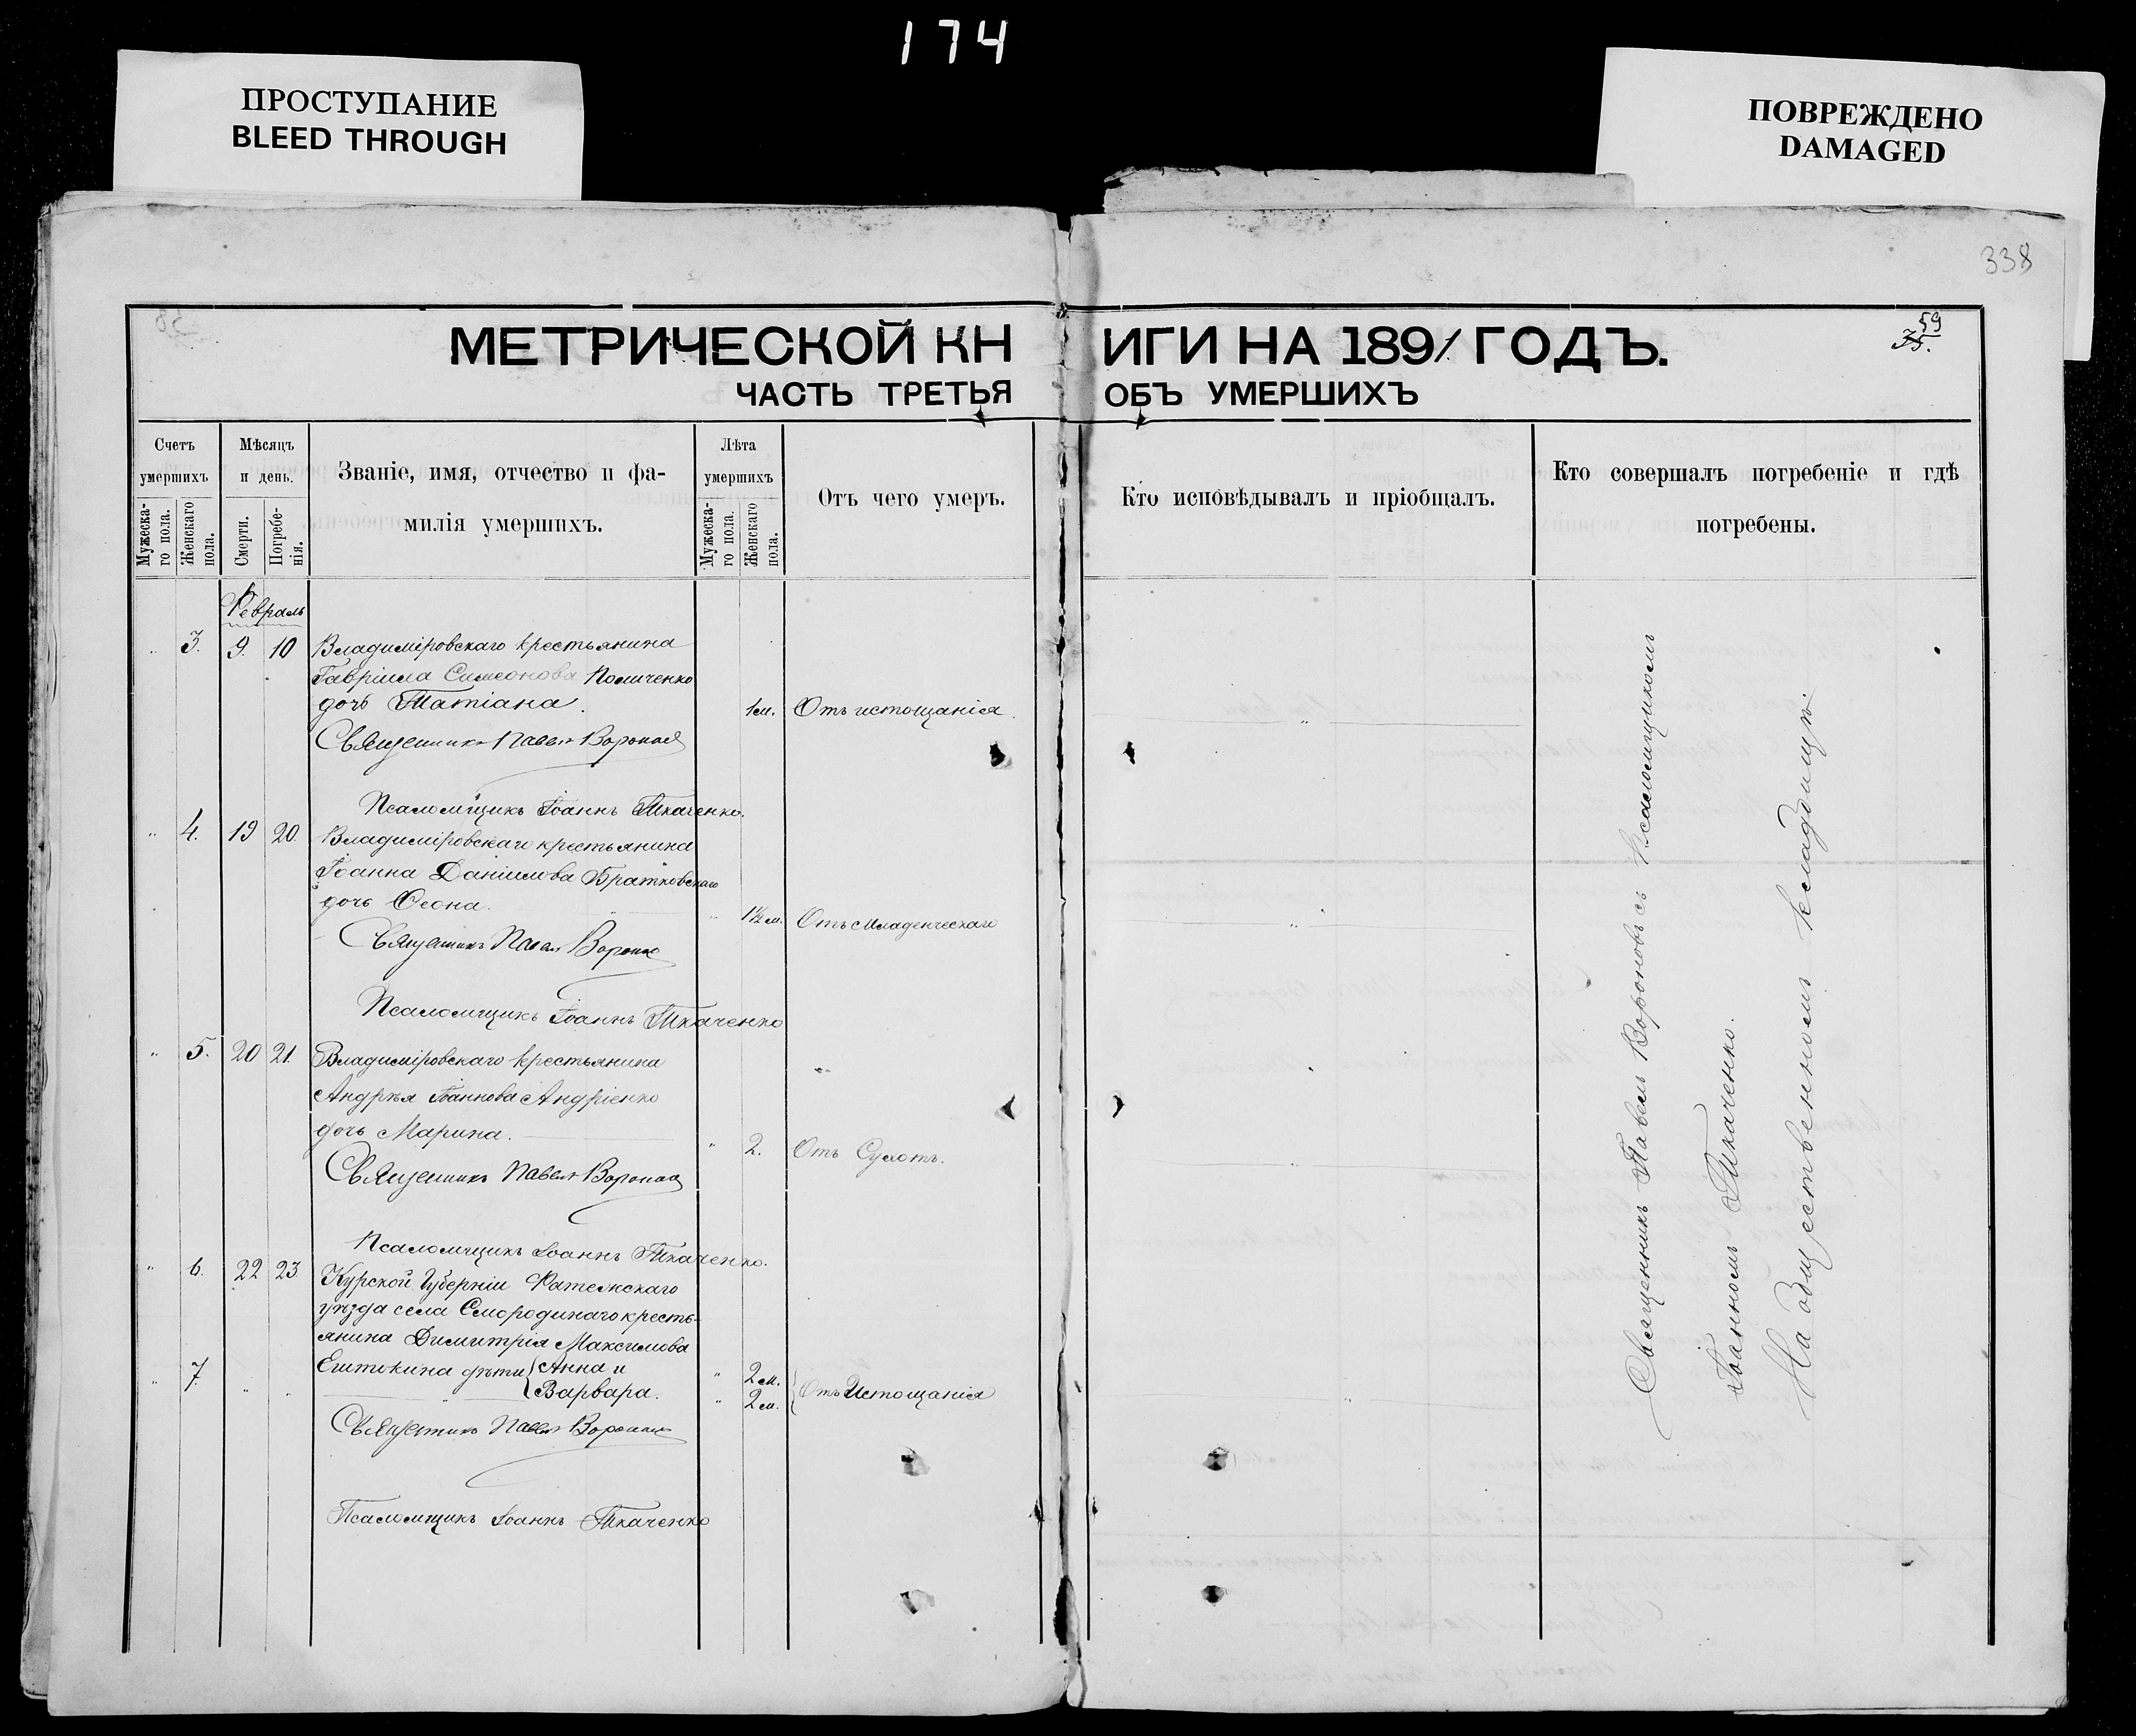 174
ПРОСТУПАНИЕ
BLEED THROUGH
ПОВРЕЖДЕНО
DAMAGED
338
59
МЕТРИЧЕСКОЙ КНИГИ НА 1891 ГОДЪ.
ЧАСТЬ ТРЕТЬЯ ОБЪ УМЕРШИХЪ
Счетъ умершихъ
Мужеска-го пола.
Женскаго пола.
Мѣсяцъ и день.
Смерти.
Погребе-нія.
Званіе, имя, отчество и фа-
милія умершихъ.
Лѣта умершихъ
Мужеска-го пола.
Женскаго пола.
Отъ чего умеръ.
Кто исповѣдывалъ и пріобщалъ.
Кто совершалъ погребеніе и гдѣ
погребены.
Февраль
" 3. 9. 10 Владиміровскаго крестьянина
Гавріила Симеонова Поличенко
дочь Татіана. 1 м. Отъ истощанія.
Священникъ Павелъ Вороновъ
Псаломщикъ Іоаннъ Ткаченко.
" 4. 19 20. Владиміровскаго крестьянина
Іоанна Даніилова Братковскаго
дочь Ѳеона. " 1½ м. Отъ младенческаго "
Священникъ Павелъ Вороновъ
Псаломщикъ Іоаннъ Ткаченко
" 5. 20 21. Владиміровскаго крестьянина
Андрѣя Іоаннова Андріенко
дочь Марина. " 2. Отъ Сухотъ. "
Священникъ Павелъ Вороновъ
Псаломщикъ Іоаннъ Ткаченко.
" 6. 22 23 Курской Губерніи Фатежскаго
уѣзда села Смородинаго кресть-
янина Димитрія Максимова
дѣти Анна и " 2 м.
" 7. " " Варвара. " 2 м. Отъ Истощанія "
Священникъ Павелъ Вороновъ
Псаломщикъ Іоаннъ Ткаченко
Священникъ Павелъ Вороновъ съ Псаломщикомъ
Іоанномъ Ткаченко.
На Общественномъ кладбищѣ.